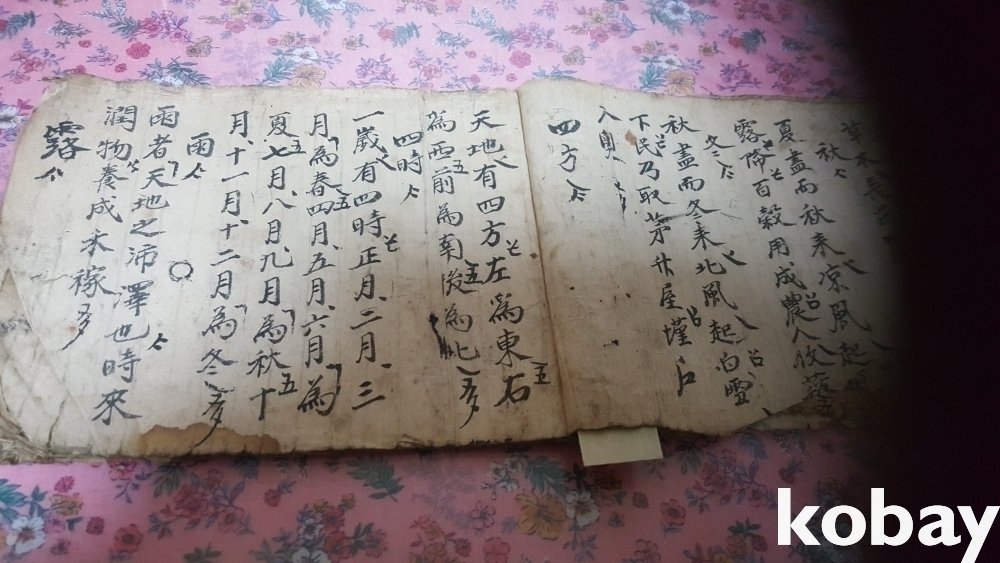 草木長
秋
夏盡而秋来凉風起
露降百穀用成農人收藏
冬
秋盡而冬来北風起白雪
下民乃取茅升屋墐户
入奧
四方
天地有四方左為東右
為西前為南後為北
四時
一歲有四時正月二月三
月為春四月五月六月為
夏七月八月九月為秋十
月十一月十二月為冬
雨
雨者天地之沛澤也時來
潤物養成禾稼
露
kobay